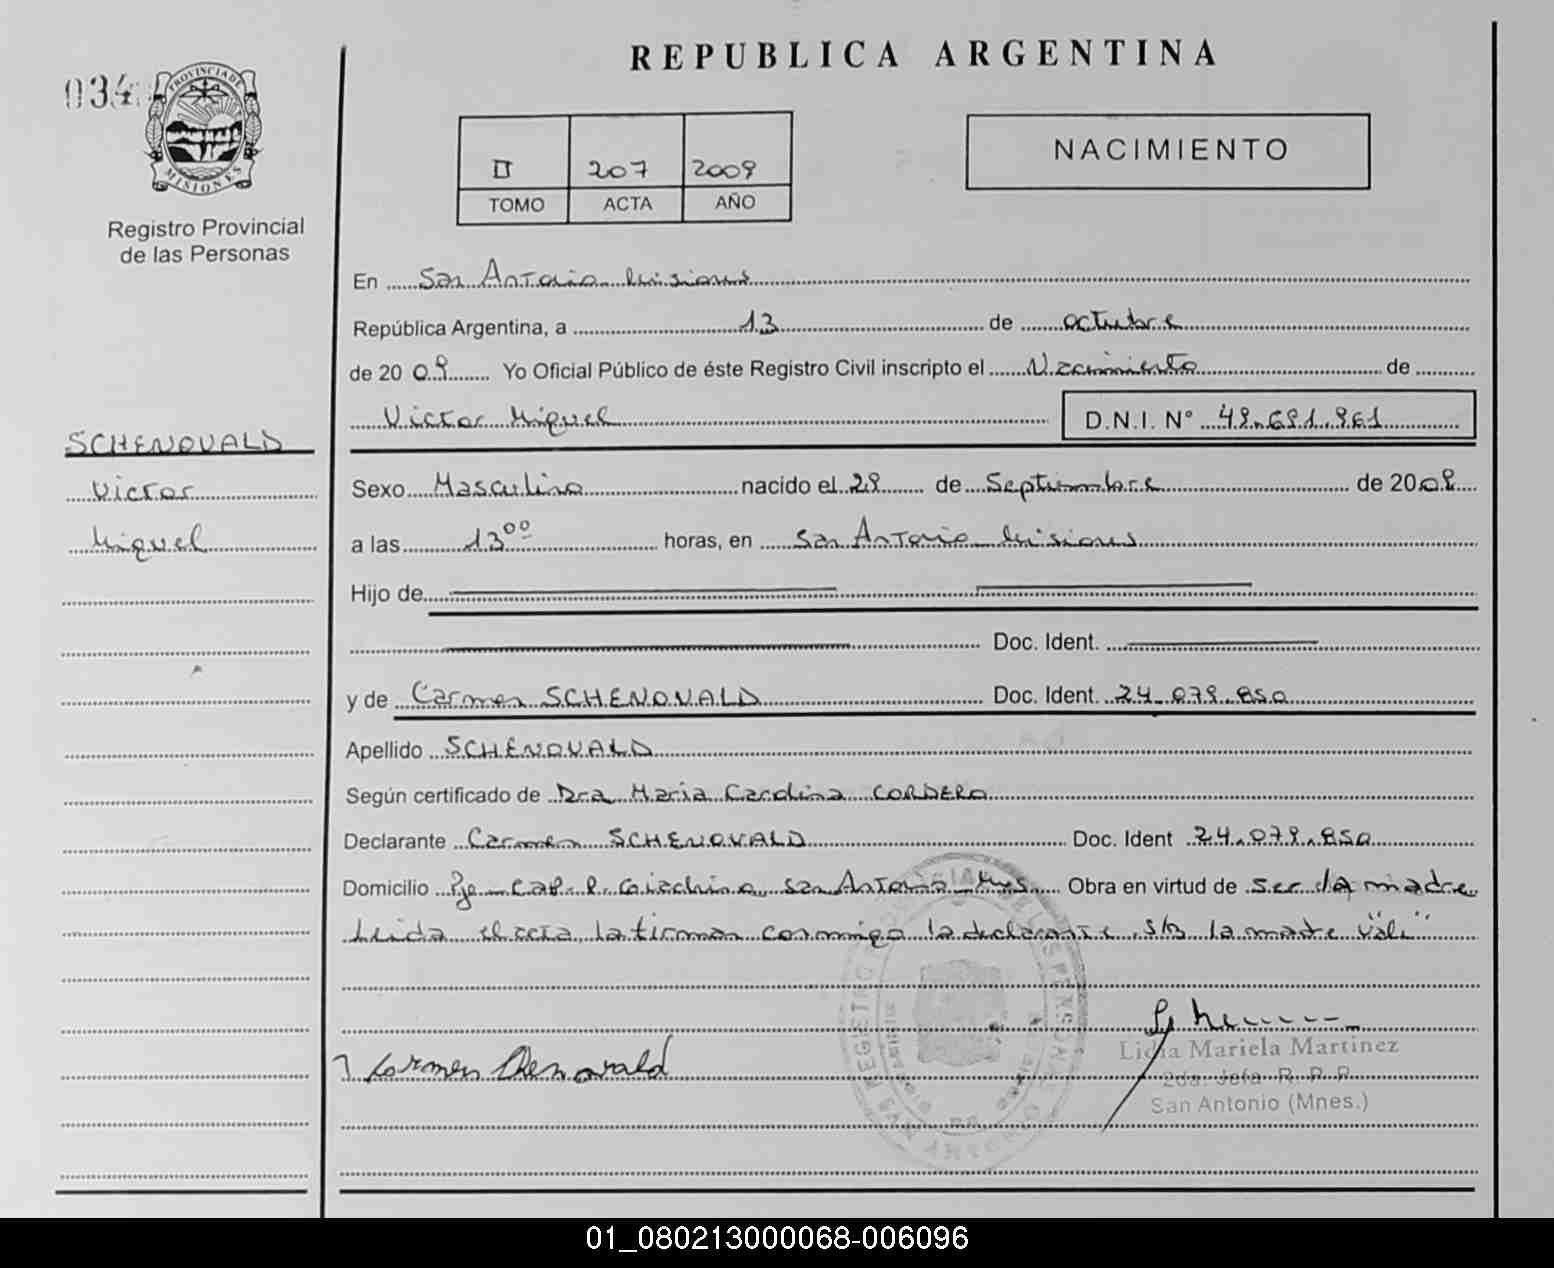 REPUBLICA ARGENTINA
034
PROVINCIA DE
MISIONES
Registro Provincial
de las Personas
II 207 2009
TOMO ACTA AÑO
NACIMIENTO
En San Antonio Misiones
República Argentina, a 13 de octubre
de 20 09 Yo Oficial Público de éste Registro Civil inscripto el Nacimiento de
Victor Miguel D.N.I. N°
SCHENOVALD
Victor
Miguel
Sexo Masculino nacido el de Septiembre de 20
a las 13⁰⁰ horas, en San Antonio Misiones
Hijo de
Doc. Ident.
y de Carmen SCHENOVALD Doc. Ident. 24.079.850
Apellido SCHENOVALD
Según certificado de Dra Maria Carolina CORDERO
Declarante Carmen SCHENOVALD Doc. Ident 24.079.850
Domicilio Pje Cap. P. Giachino San Antonio Mns. Obra en virtud de ser la madre
Leida el acta la firman conmigo la declarante. S/B la madre "Vale"
Carmen
Lidia Mariela Martinez
2da. Jefa R. P. P.
San Antonio (Mnes.)
01_080213000068-006096